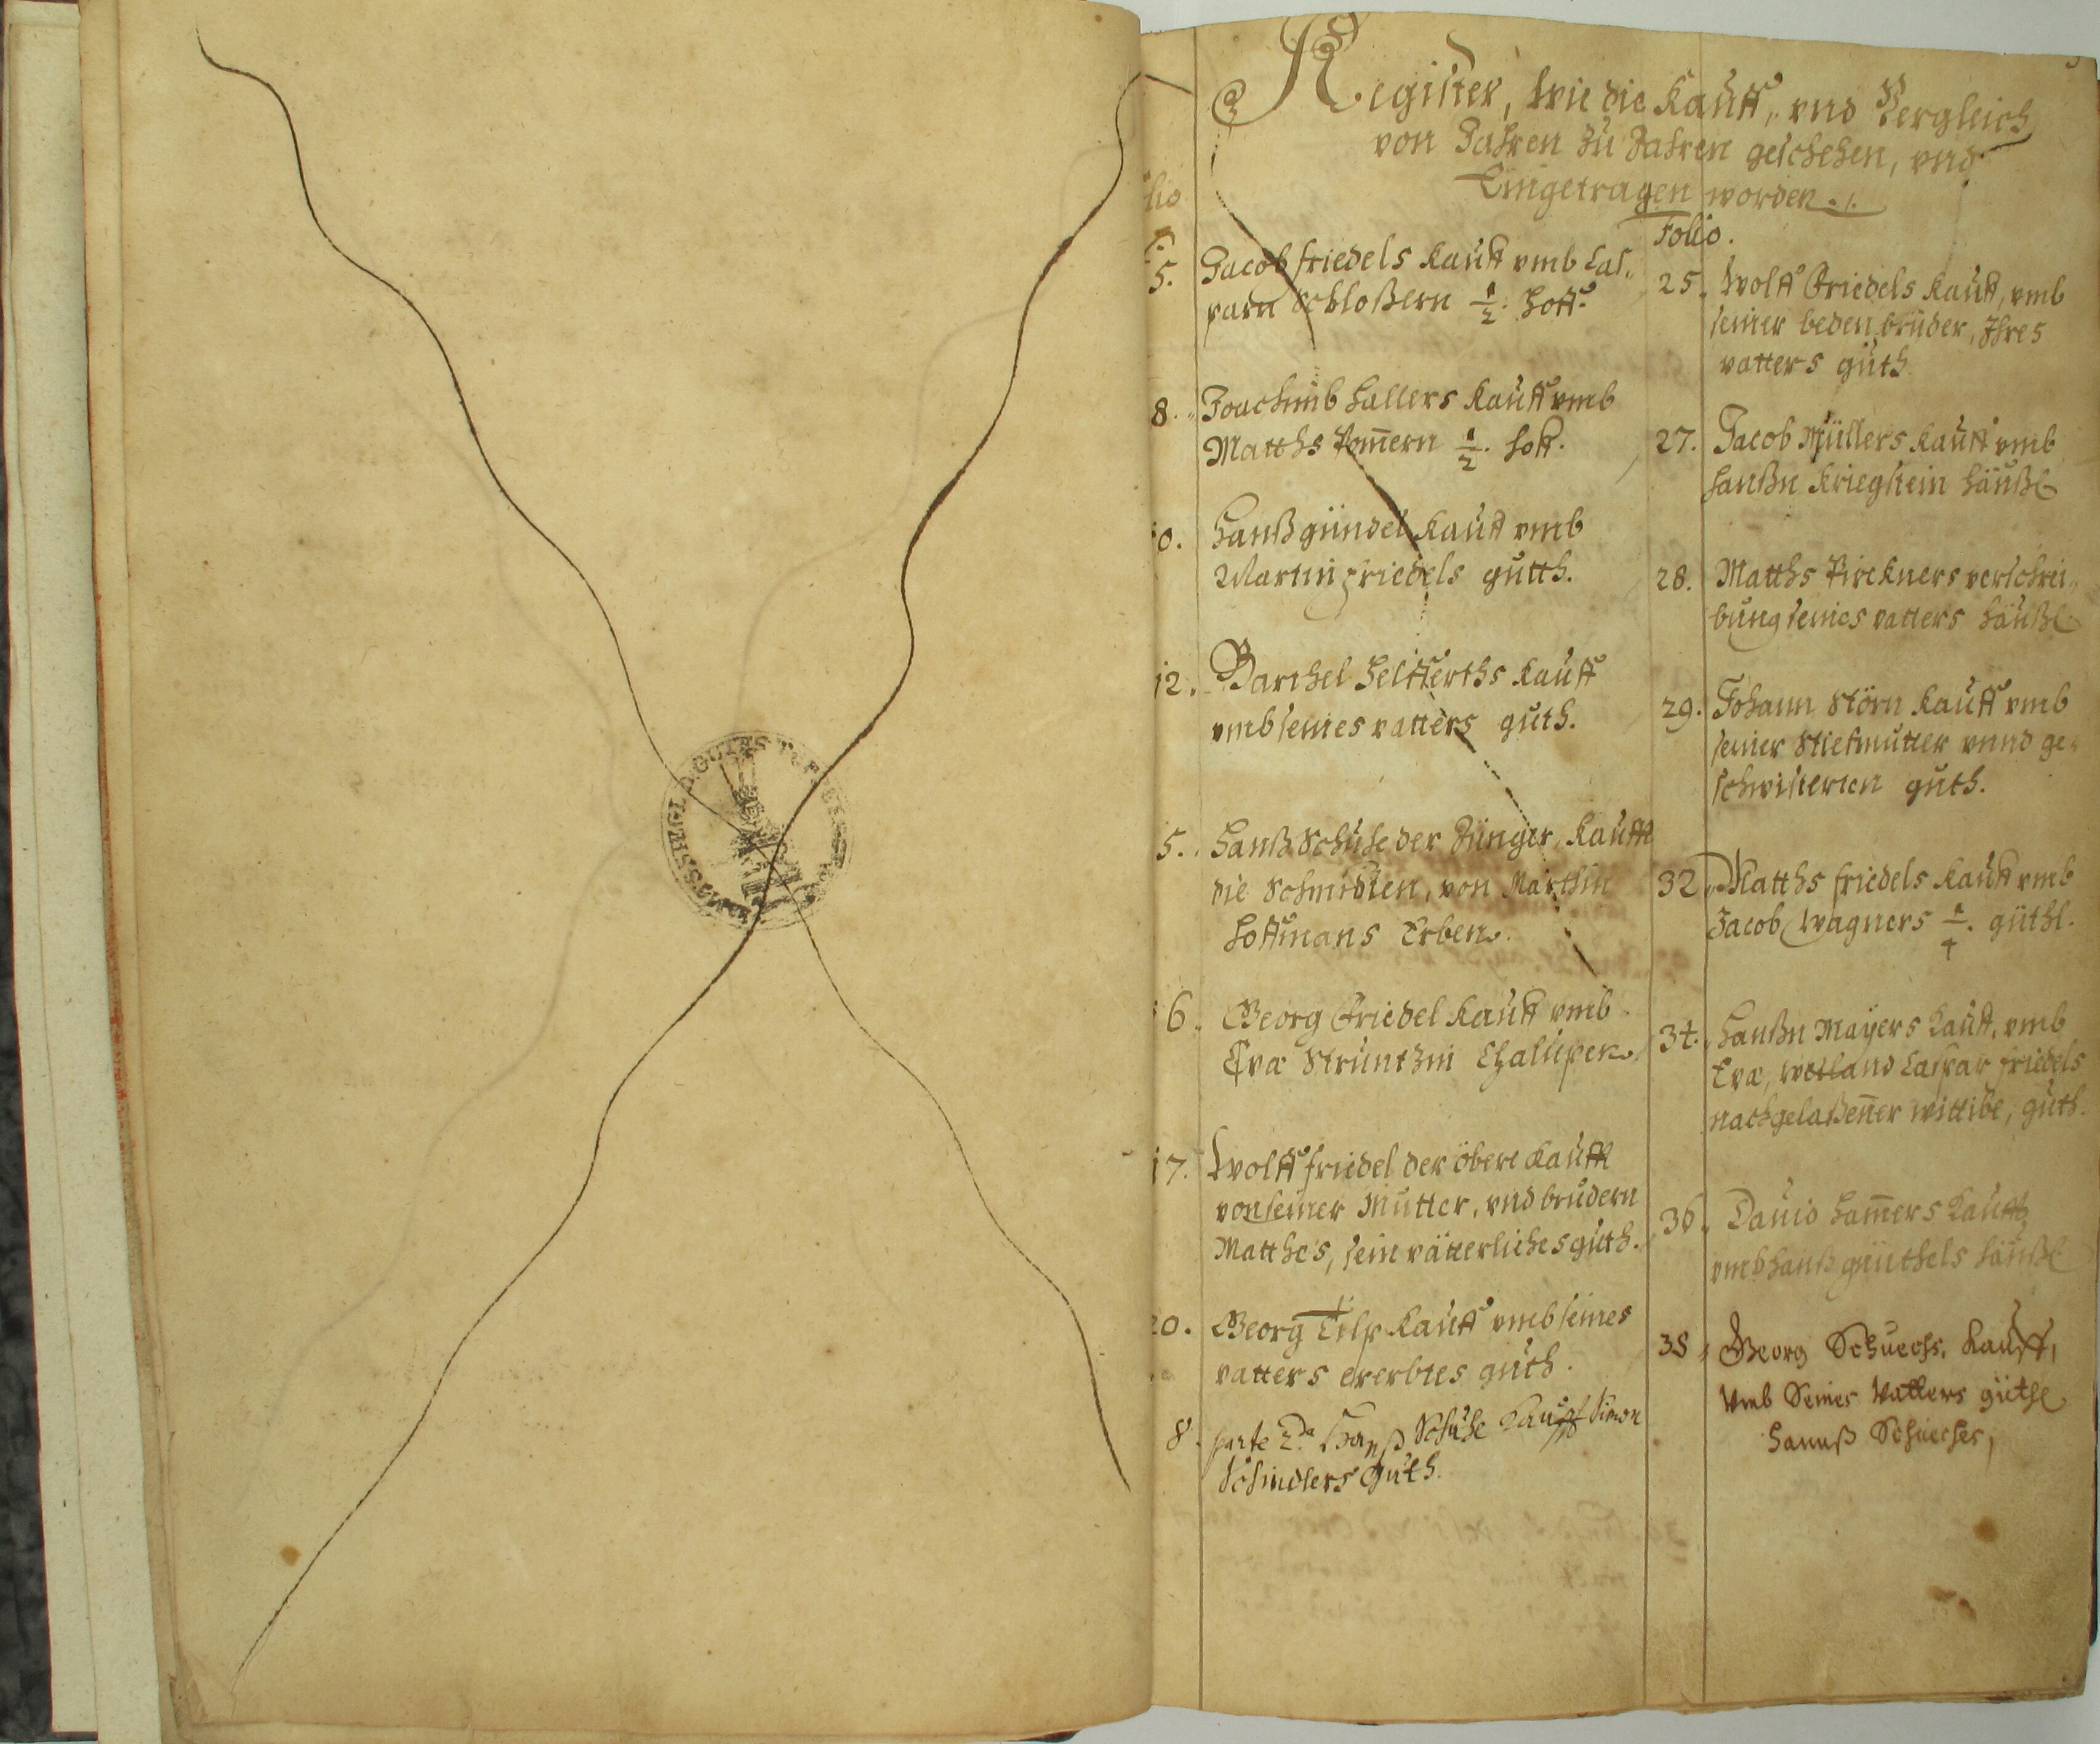 Register, wie die Kauff, vnd Vergleich
von Jahren zu Jahren geschehen, vnd
Eingetragen worden
lio
5. Jacob friedels Kauff vmb Cas„
parn Schloßern ½. Hoff.
8. Joachimb Hallers Kauff vmb
Matths Pom̄ern ½. Hoff.
0. Hanß gündel Kauff vmb
Martin friedels gutth.
12. Barthel Seifferths Kauff
vmb seines vatters guth.
5. Hanß Schuhe der Jünger, Kaufft
die Schmidten, von Marthin
Hoffmans Erben.
6. Georg Friedel Kauff vmb
Eva Strunthin
17. Wolff friedel der öbere Kaufft
von seiner Mutter, vnd brudern
Matthes, sein vätterliches guth.
20. Georg Tilp Kauff vmb seines
vatters ererbtes guth.
8. parte 2da. Hanß Schuhe Kauff Simon
Schindlers Guth.
Folio.
25. Wolff Friedels Kauff, vmb
seiner beden brüder, Ihres
vatters guth
27. Jacob Müllers Kauff vmb
Hanßn Kriegstein häußl
28. Matths Pirckners verschrei„
bung seines vatters häußl
29. Johann Störn Kauff vmb
seiner Stiefmutter vnnd ge„
schwisterten guth.
32. Matths friedels Kauff vmb
Jacob Wagners ¼. güthl.
34. Hanßn Mayers Kauff, vmb
Eva, weiland Caspar friedels
nachgelaßen̄er wittibe, guth.
36. Dauid Ham̄ers Kauff
vmb Hanß günthels häußl
38 Georg Schuechs. Kauff,
Vmb Seines Vatters güthl
Hannß Schueches,